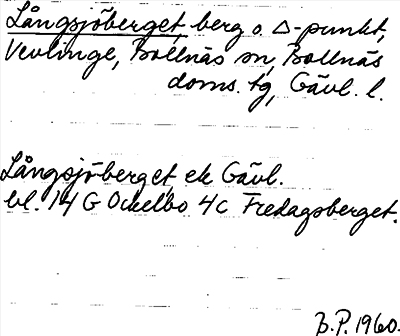 Långsjöberget, berg o. Δ-punkt,
Vevlinge, Bollnäs sn, Bollnäs
doms. tg, Gävl. l.
Långsjöberget, ek Gävl.
bl. 14 G Ockelbo 4c Fredagsberget.
B.P. 1960.